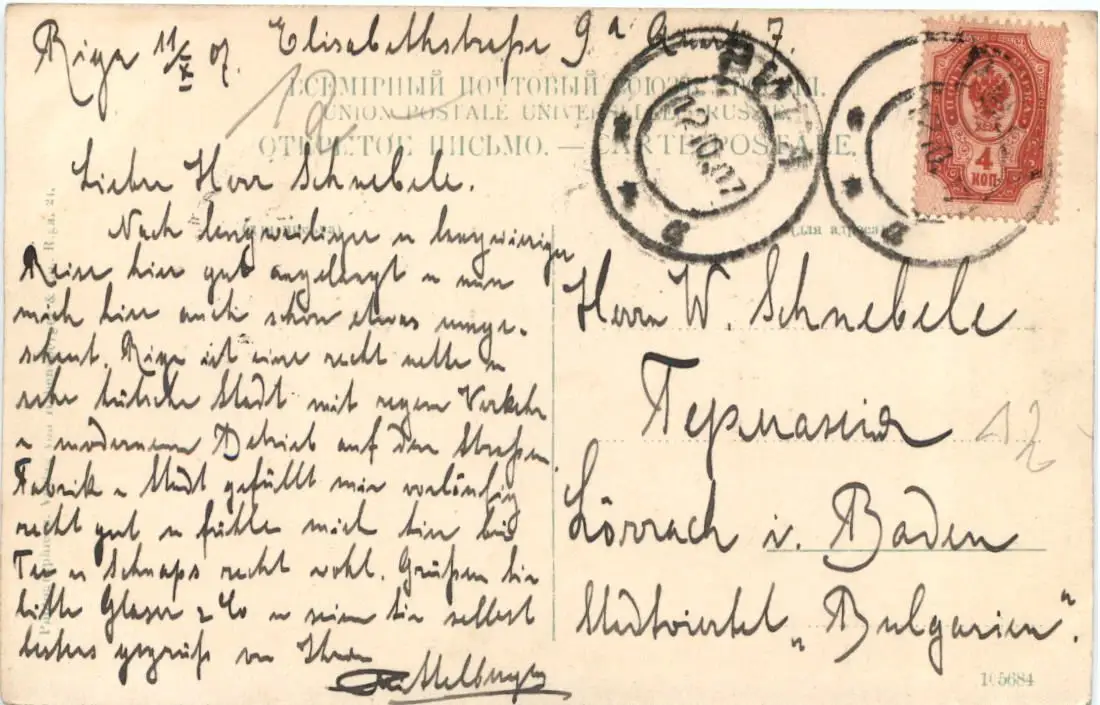 Riga 11/IX 07. Elisabethstraße 9a Quart 7.
ВСЕМІРНЫЙ ПОЧТОВЫЙ СОЮЗЪ.
UNION POSTALE UNIVERSELLE. RUSSIE.
ОТКРЫТОЕ ПИСЬМО. — CARTE POSTALE.
РИГА
12.10.07
4
КОП
(для адреса)
Lieber Herr Schnebele.
Nach langweiliger u langwieriger
Reise hier gut angelangt u nun
mich hier auch schon etwas umge-
schaut. Riga ist eine recht nette u
sehr hübsche Stadt mit regem Verkehr
u modernem Betrieb auf den Straßen
Fabrik u Stadt gefällt mir vorläufig
recht gut u fühle mich hier bei
Tee u Schnaps recht wohl. Grüßen Sie
bitte Glaser & Co u seien Sie selbst
bestens gegrüßt von Ihrem
Herrn W. Schnebele
Германія
Lörrach i. Baden
Stadtviertel „Bulgarien".
12
105684